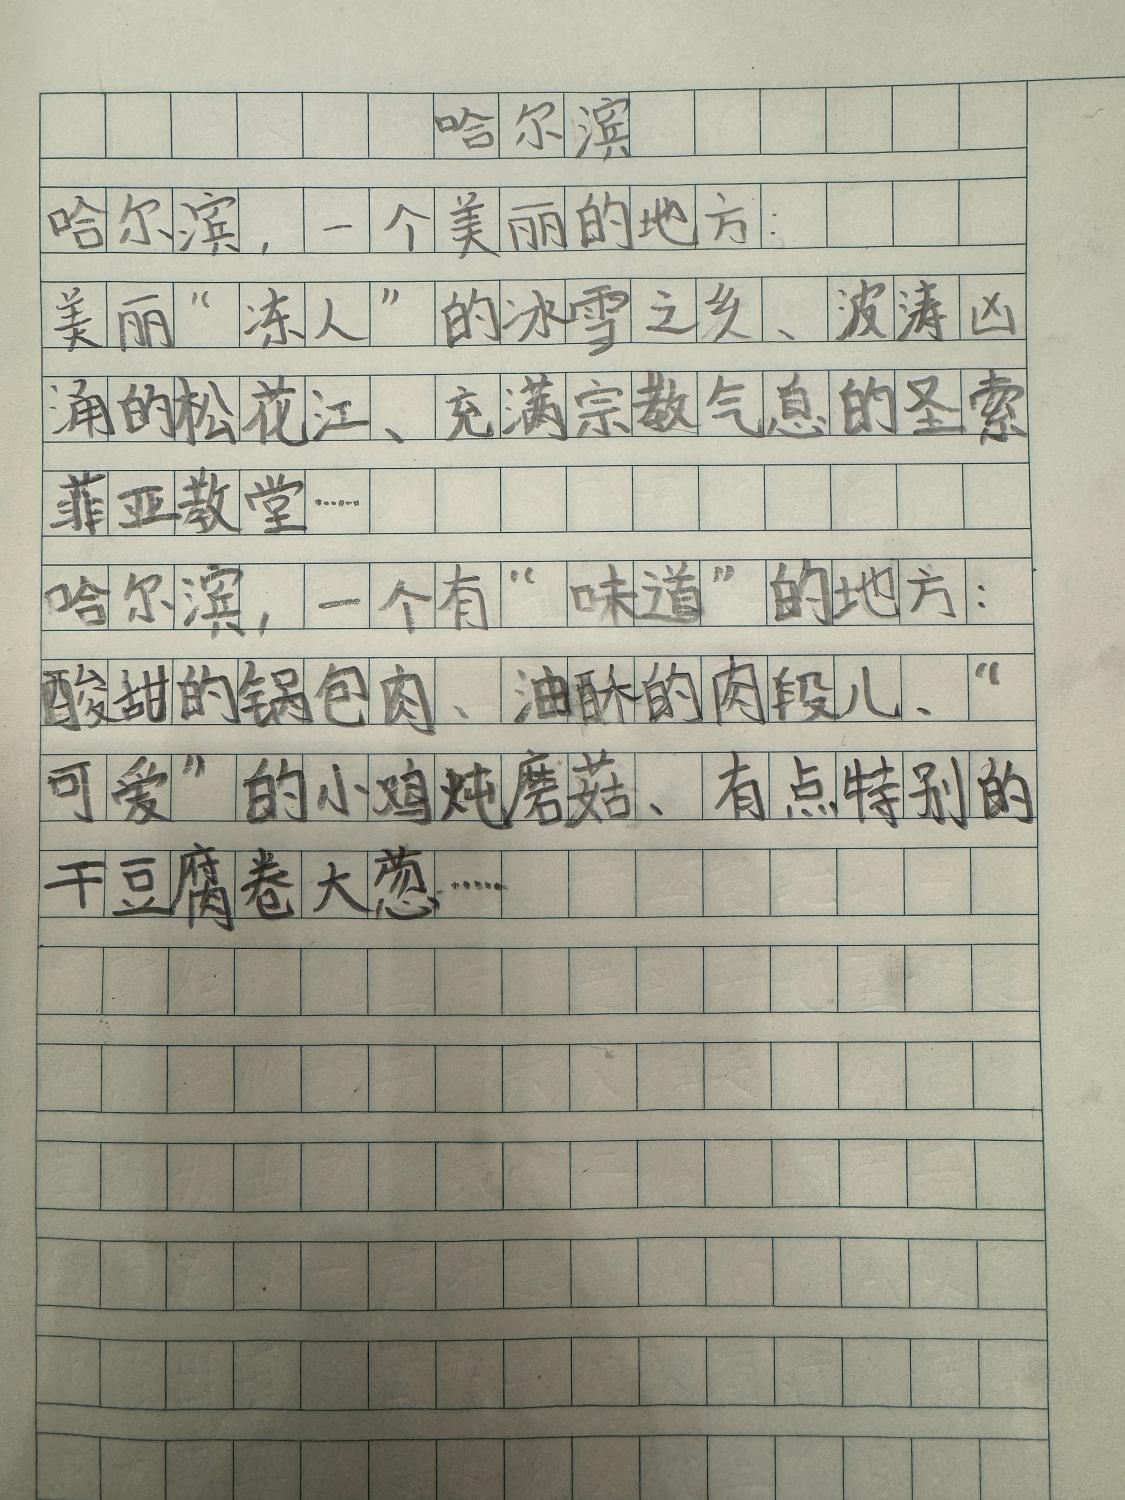 哈尔滨
哈尔滨，一个美丽的地方：
美丽“冻人”的冰雪之乡、波涛凶
涌的松花江、充满宗教气息的圣索
菲亚教堂……
哈尔滨，一个有“味道”的地方：
酸甜的锅包肉、油酥的肉段儿、“
可爱”的小鸡炖磨菇、有点特别的
干豆腐卷大葱……